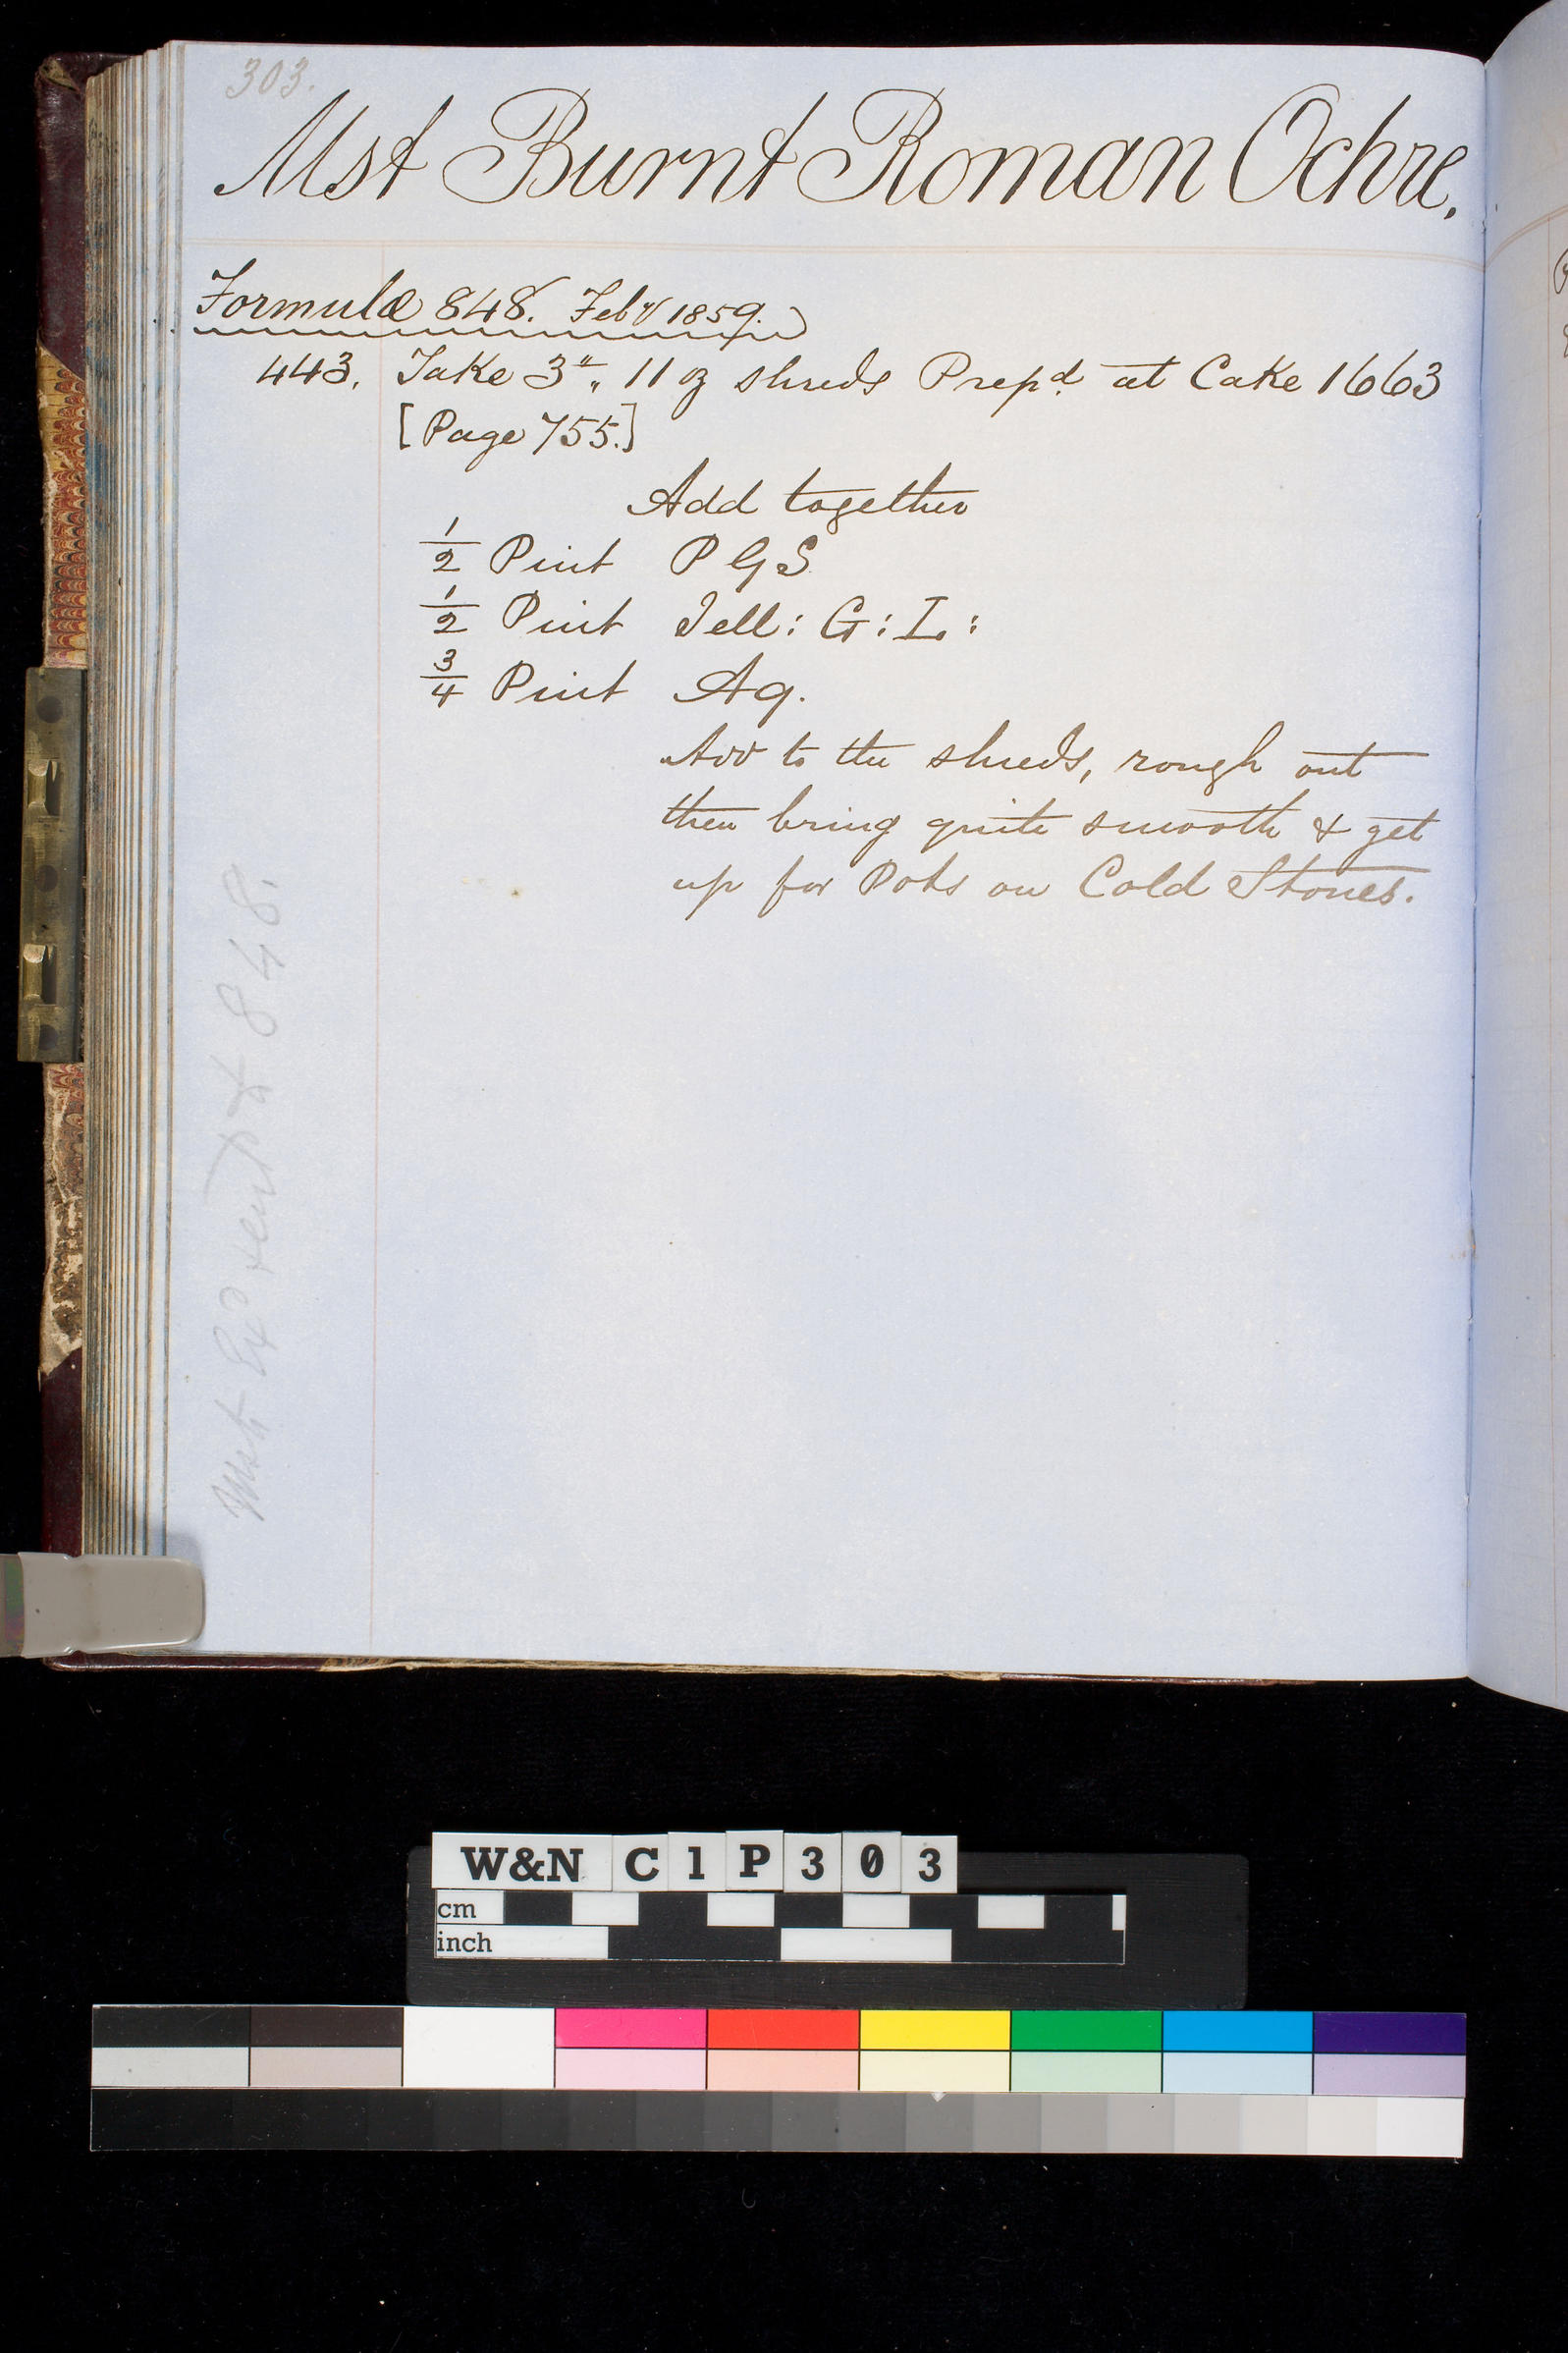 303.
Mst Burnt Roman Ochre.
Formula 848. Feby 1859.
443. Take 3 lb,, 11 oz shreds Prepd. at Cake 1663
[Page 755.]
Add together
1/2 Pint P G S
1/2 Pint Jell: G: L:
3/4 Pint Aq.
Add to the shreds, rough out
then bring quite smooth & get
up for Pots on Cold Stones.
Mst 848.
W&N C1P303
cm
inch